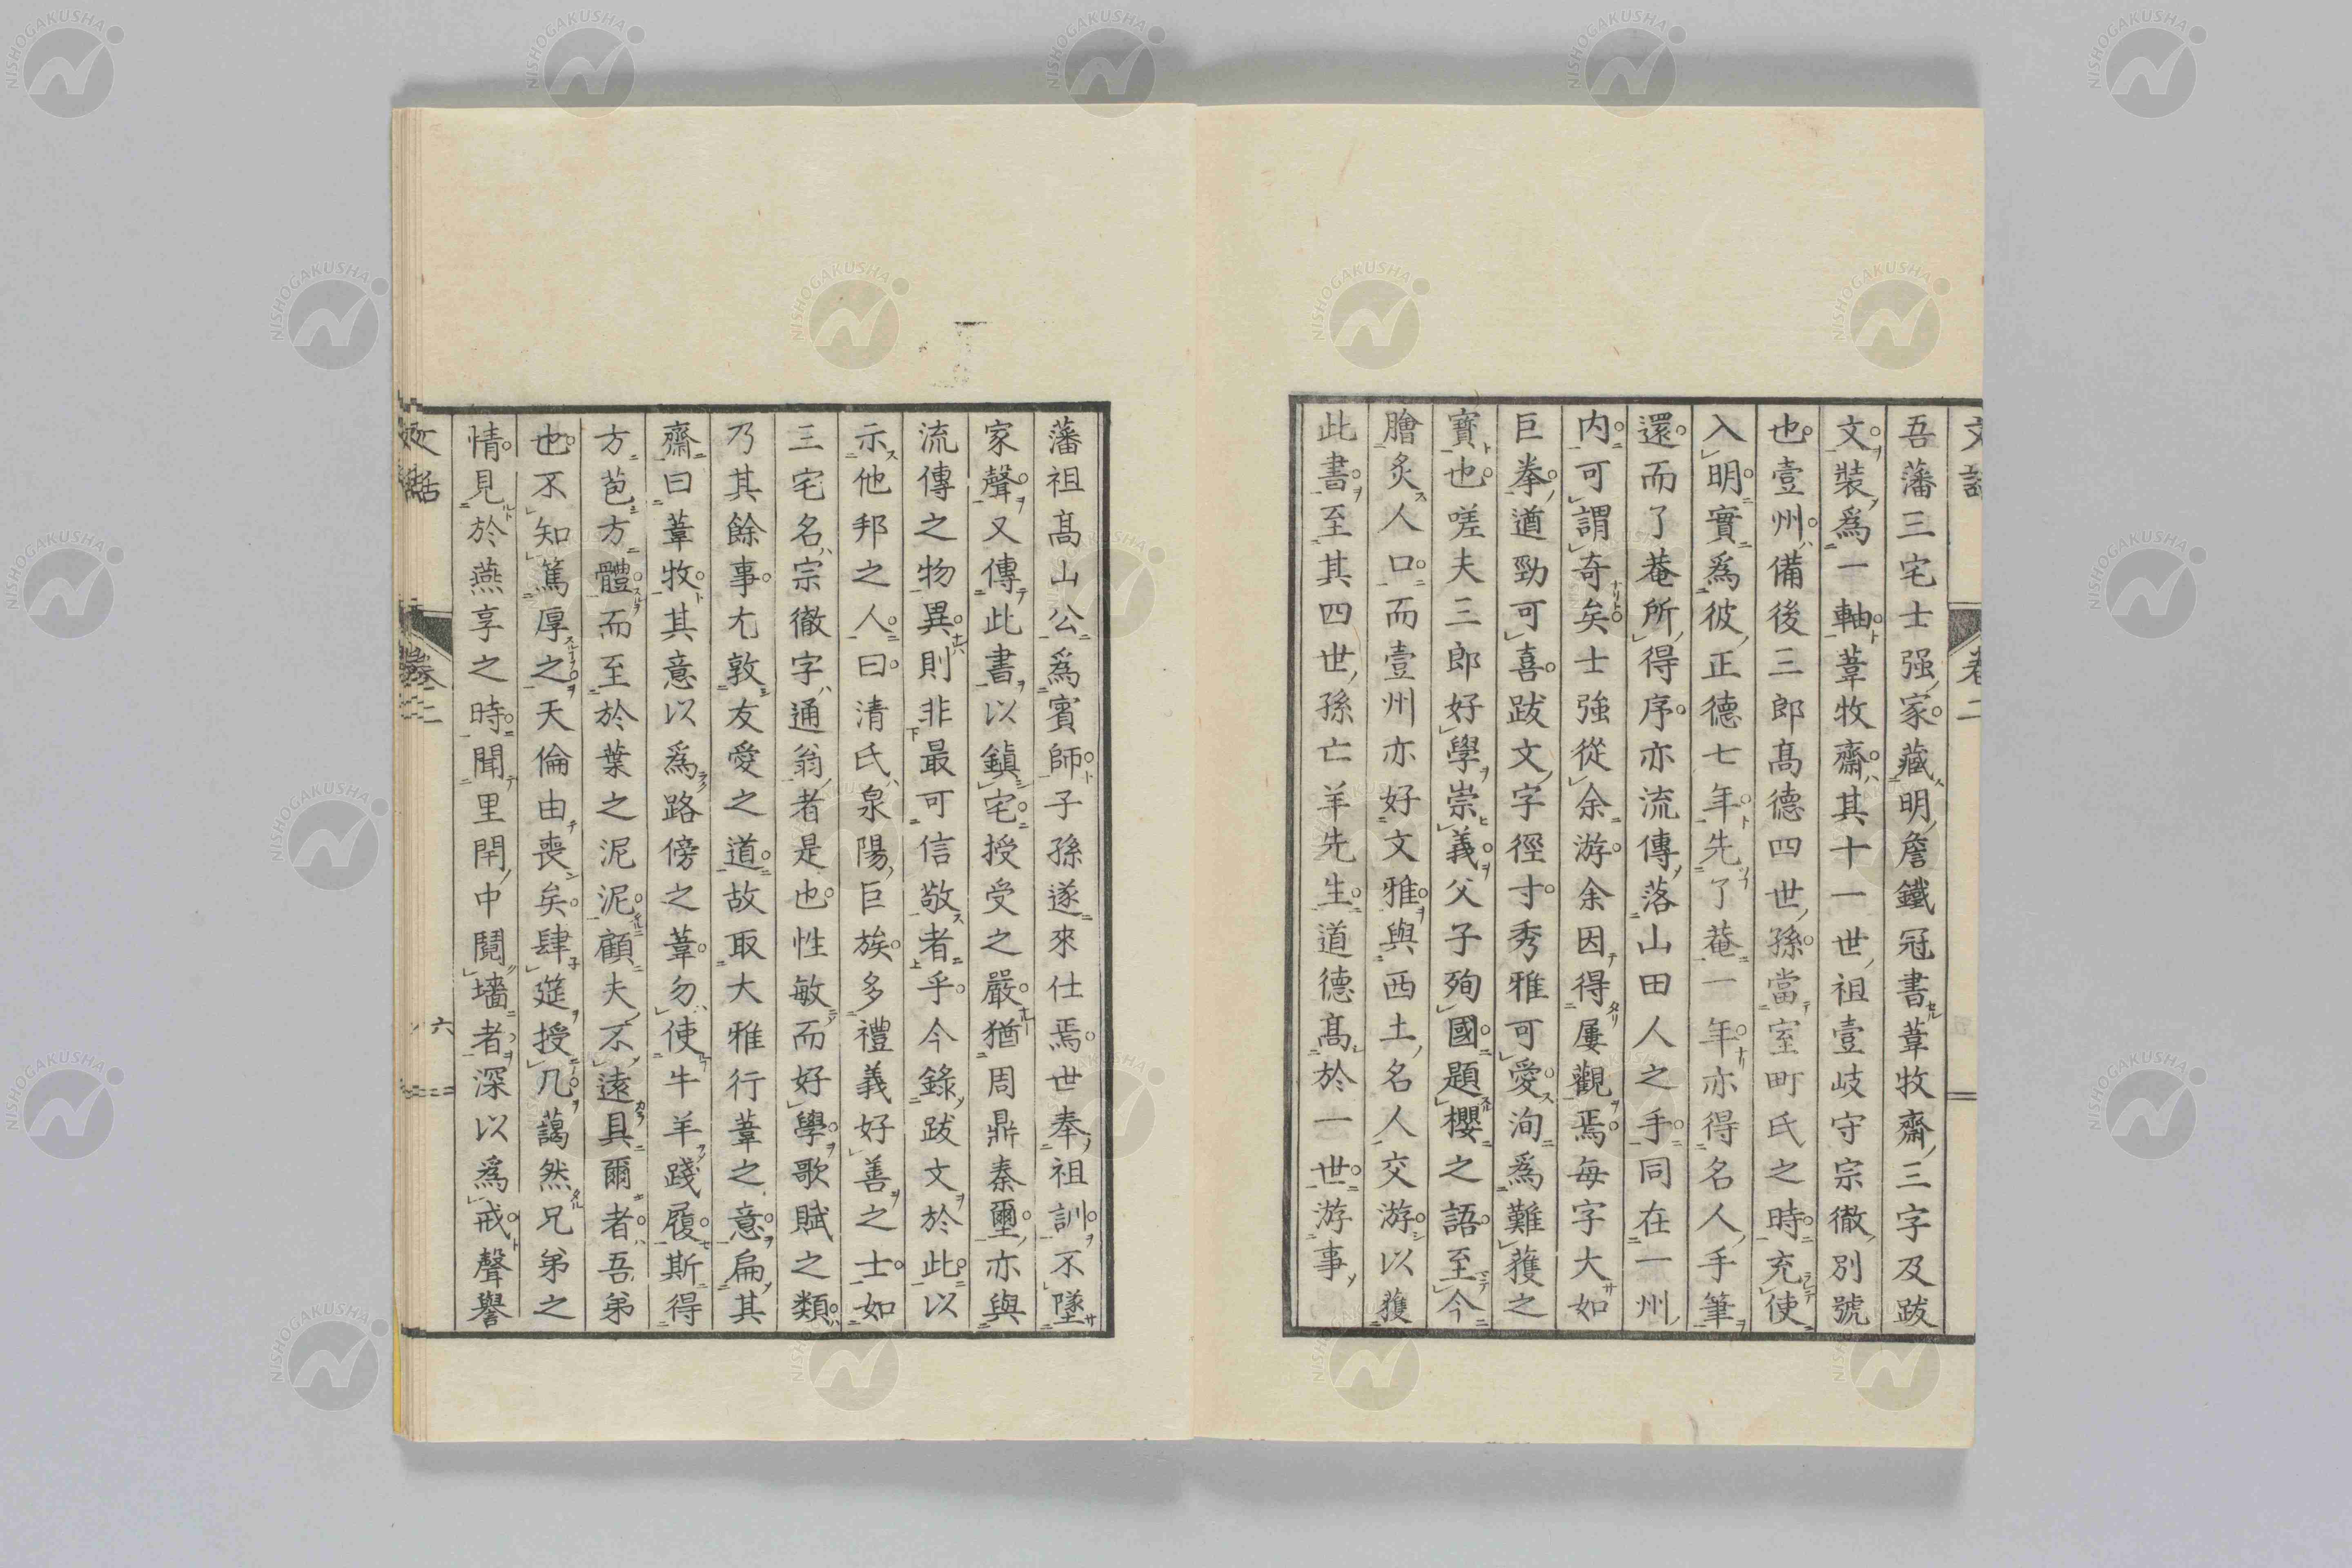 吾藩三宅士强家藏明詹鐵冠書葦牧齋三字及跋
文裝爲一軸葦牧齋其十一世祖壹岐守宗徹別號
也壹州備後三郎髙德四世孫當室町氏之時充使
入明實爲彼正德七年先了菴一年亦得名人手筆
還而了菴所得序亦流傳落山田人之手同在一州
内可謂奇矣士強從余游余因得屢觀焉每字大如
巨拳遒勁可喜跋文字徑寸秀雅可愛洵爲難獲之
寶也嗟夫三郎好學崇義父子殉國題櫻之語至今
膾炙人口而壹州亦好文雅與西土名人交游以獲
此書至其四世孫亡羊先生道德髙於一世游事
藩祖髙山公爲賓師子孫遂來仕焉世奉祖訓不墜
家聲又傳此書以鎮宅授受之嚴猶周鼎秦璽亦與
流傳之物異則非最可信敬者乎今錄跋文於此以
示他邦之人曰清氏泉陽巨族多禮義好善之士如
三宅名宗徹字通翁者是也性敏而好學歌賦之類
乃其餘事尤敦友愛之道故取大雅行葦之意扁其
齋曰葦牧其意以爲路傍之葦勿使牛羊踐履斯得
方苞方體而至於葉之泥泥顧夫不遠具爾者吾弟
也不知篤厚之天倫由喪矣肆筵授几藹然兄弟之
情見於燕享之時聞里閈中鬩墻者深以爲戒聲譽
文話
卷二
六
NISHOGAKUSHA